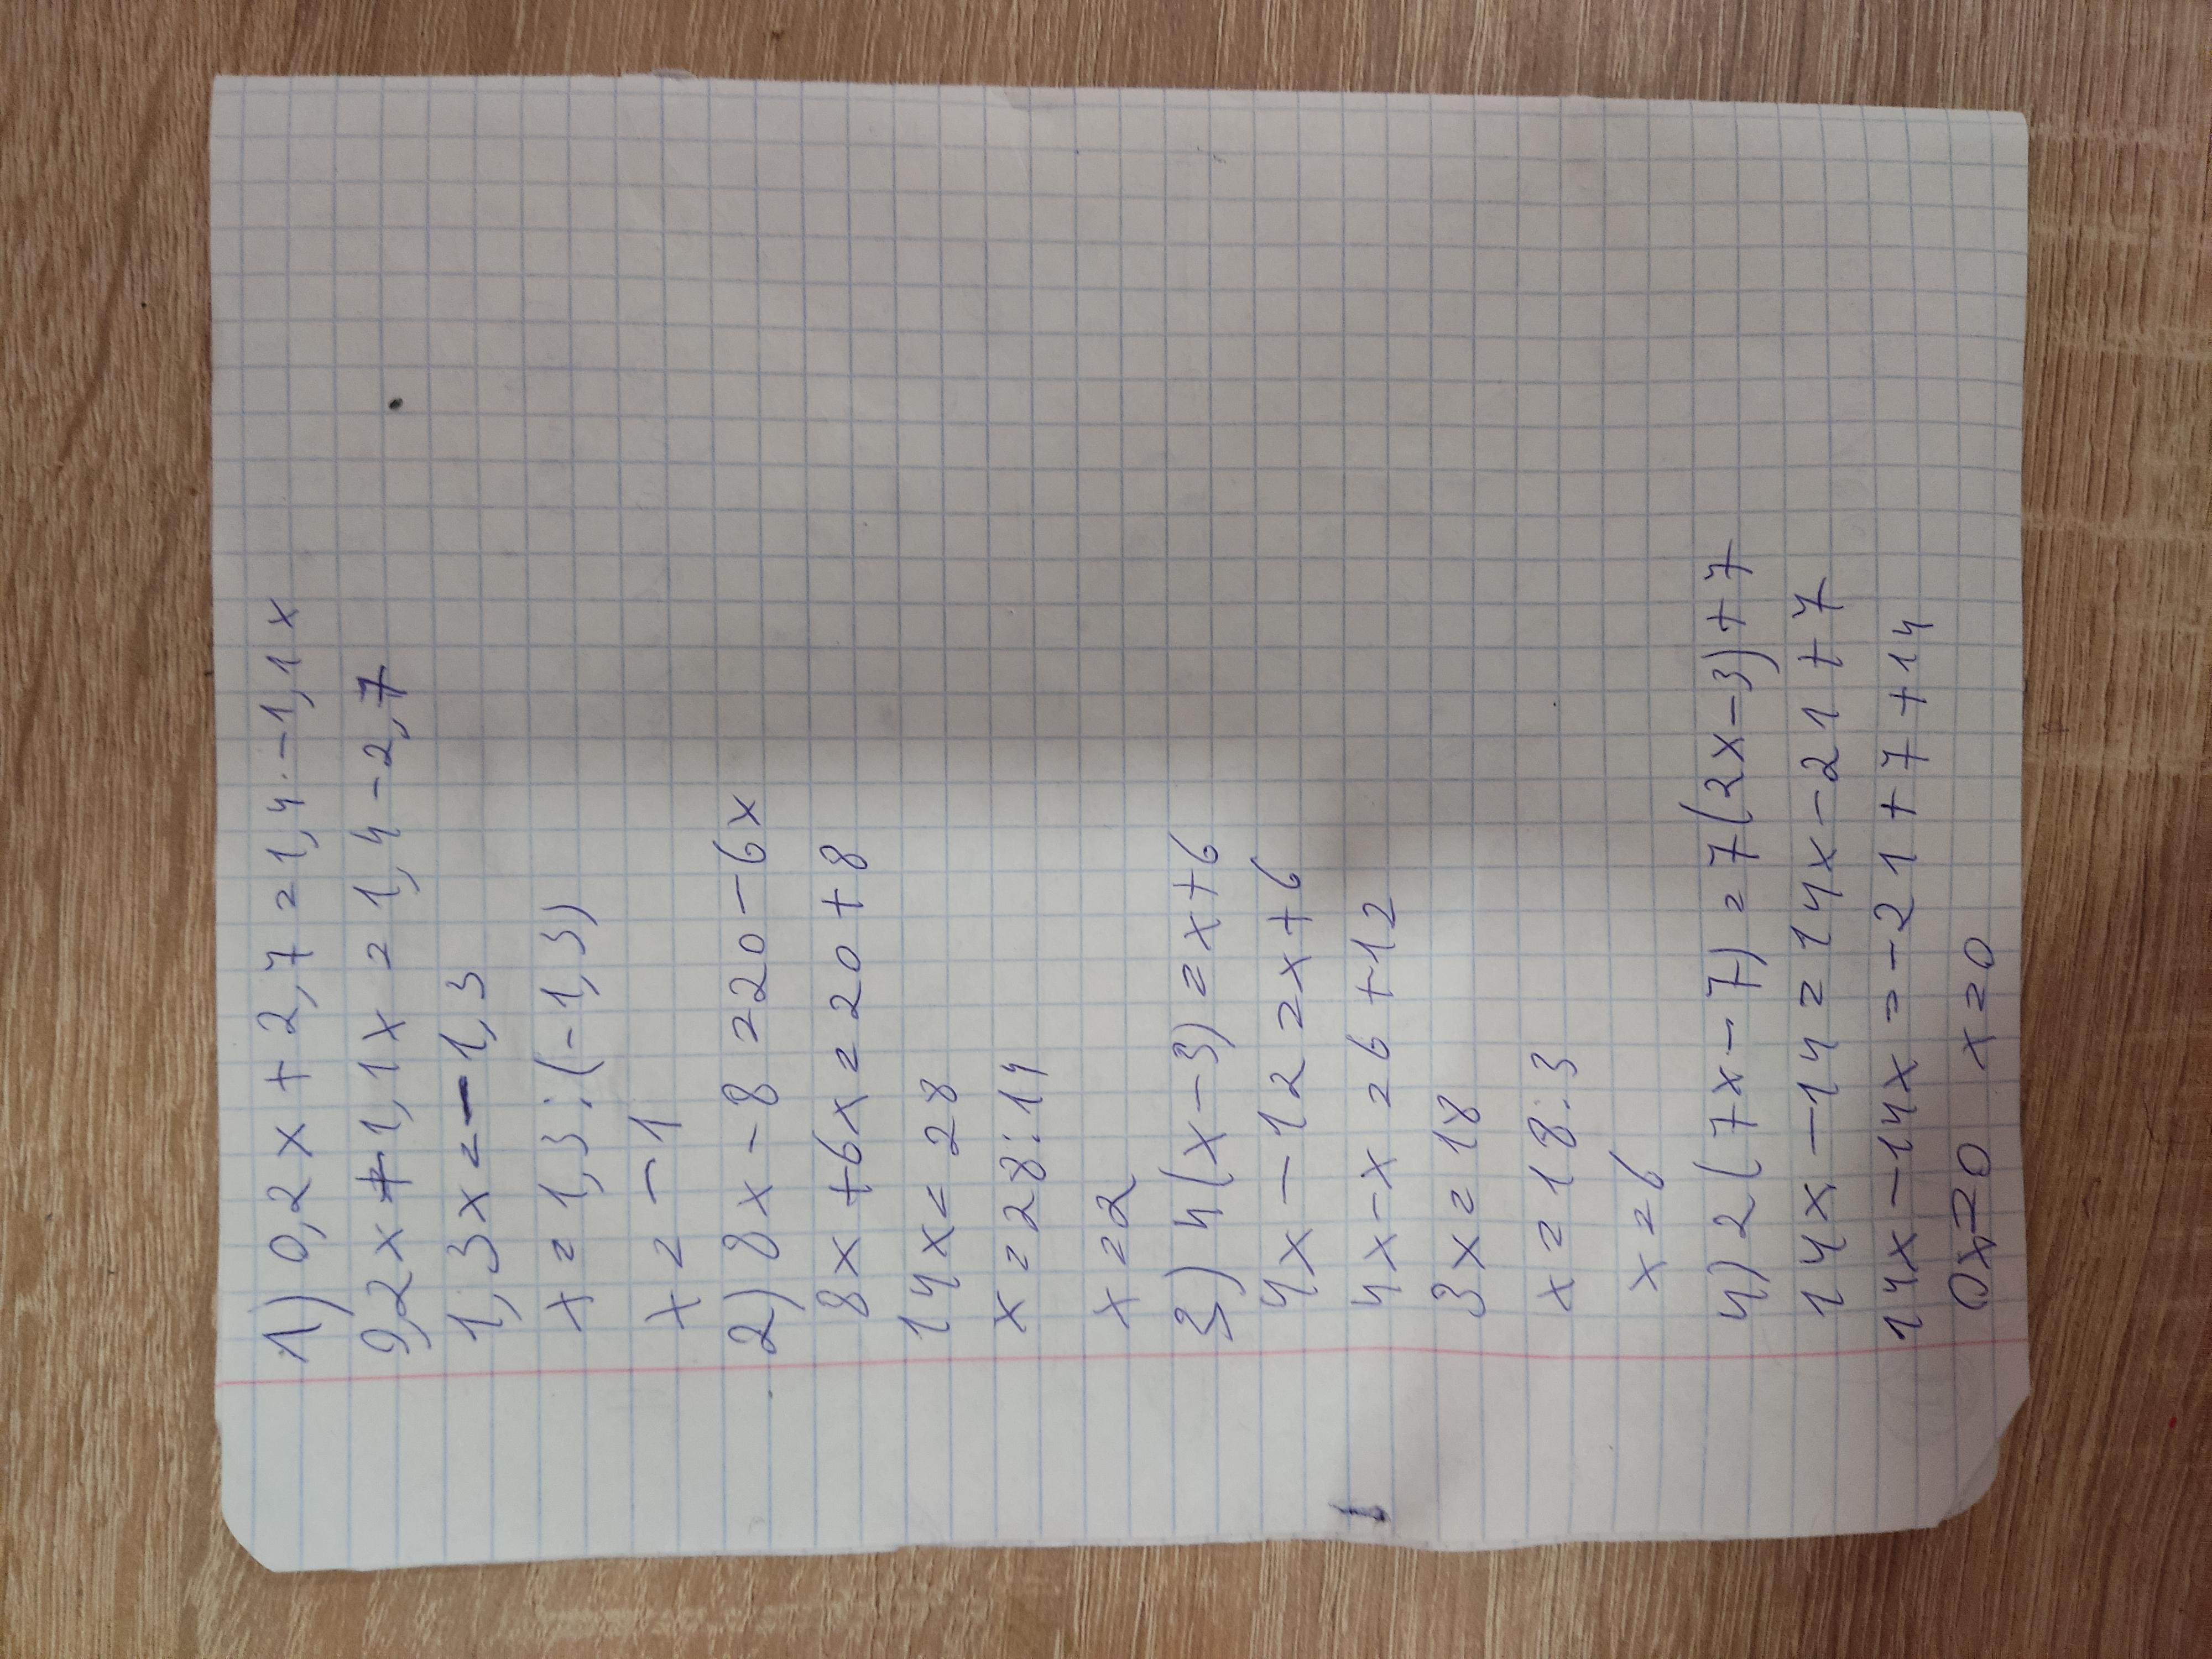 1) 0,2x + 2,7 = 1,4 - 1,1x
0,2x + 1,1x = 1,4 - 2,7
1,3x = -1,3
x = 1,3 : (-1,3)
x = -1
2) 8x - 8 = 20 - 6x
8x + 6x = 20 + 8
14x = 28
x = 28 : 14
x = 2
3) 4(x - 3) = x + 6
4x - 12 = x + 6
4x - x = 6 + 12
3x = 18
x = 18 : 3
x = 6
4) 2(7x - 7) = 7(2x - 3) + 7
14x - 14 = 14x - 21 + 7
14x - 14x = -21 + 7 + 14
0x = 0 x = 0